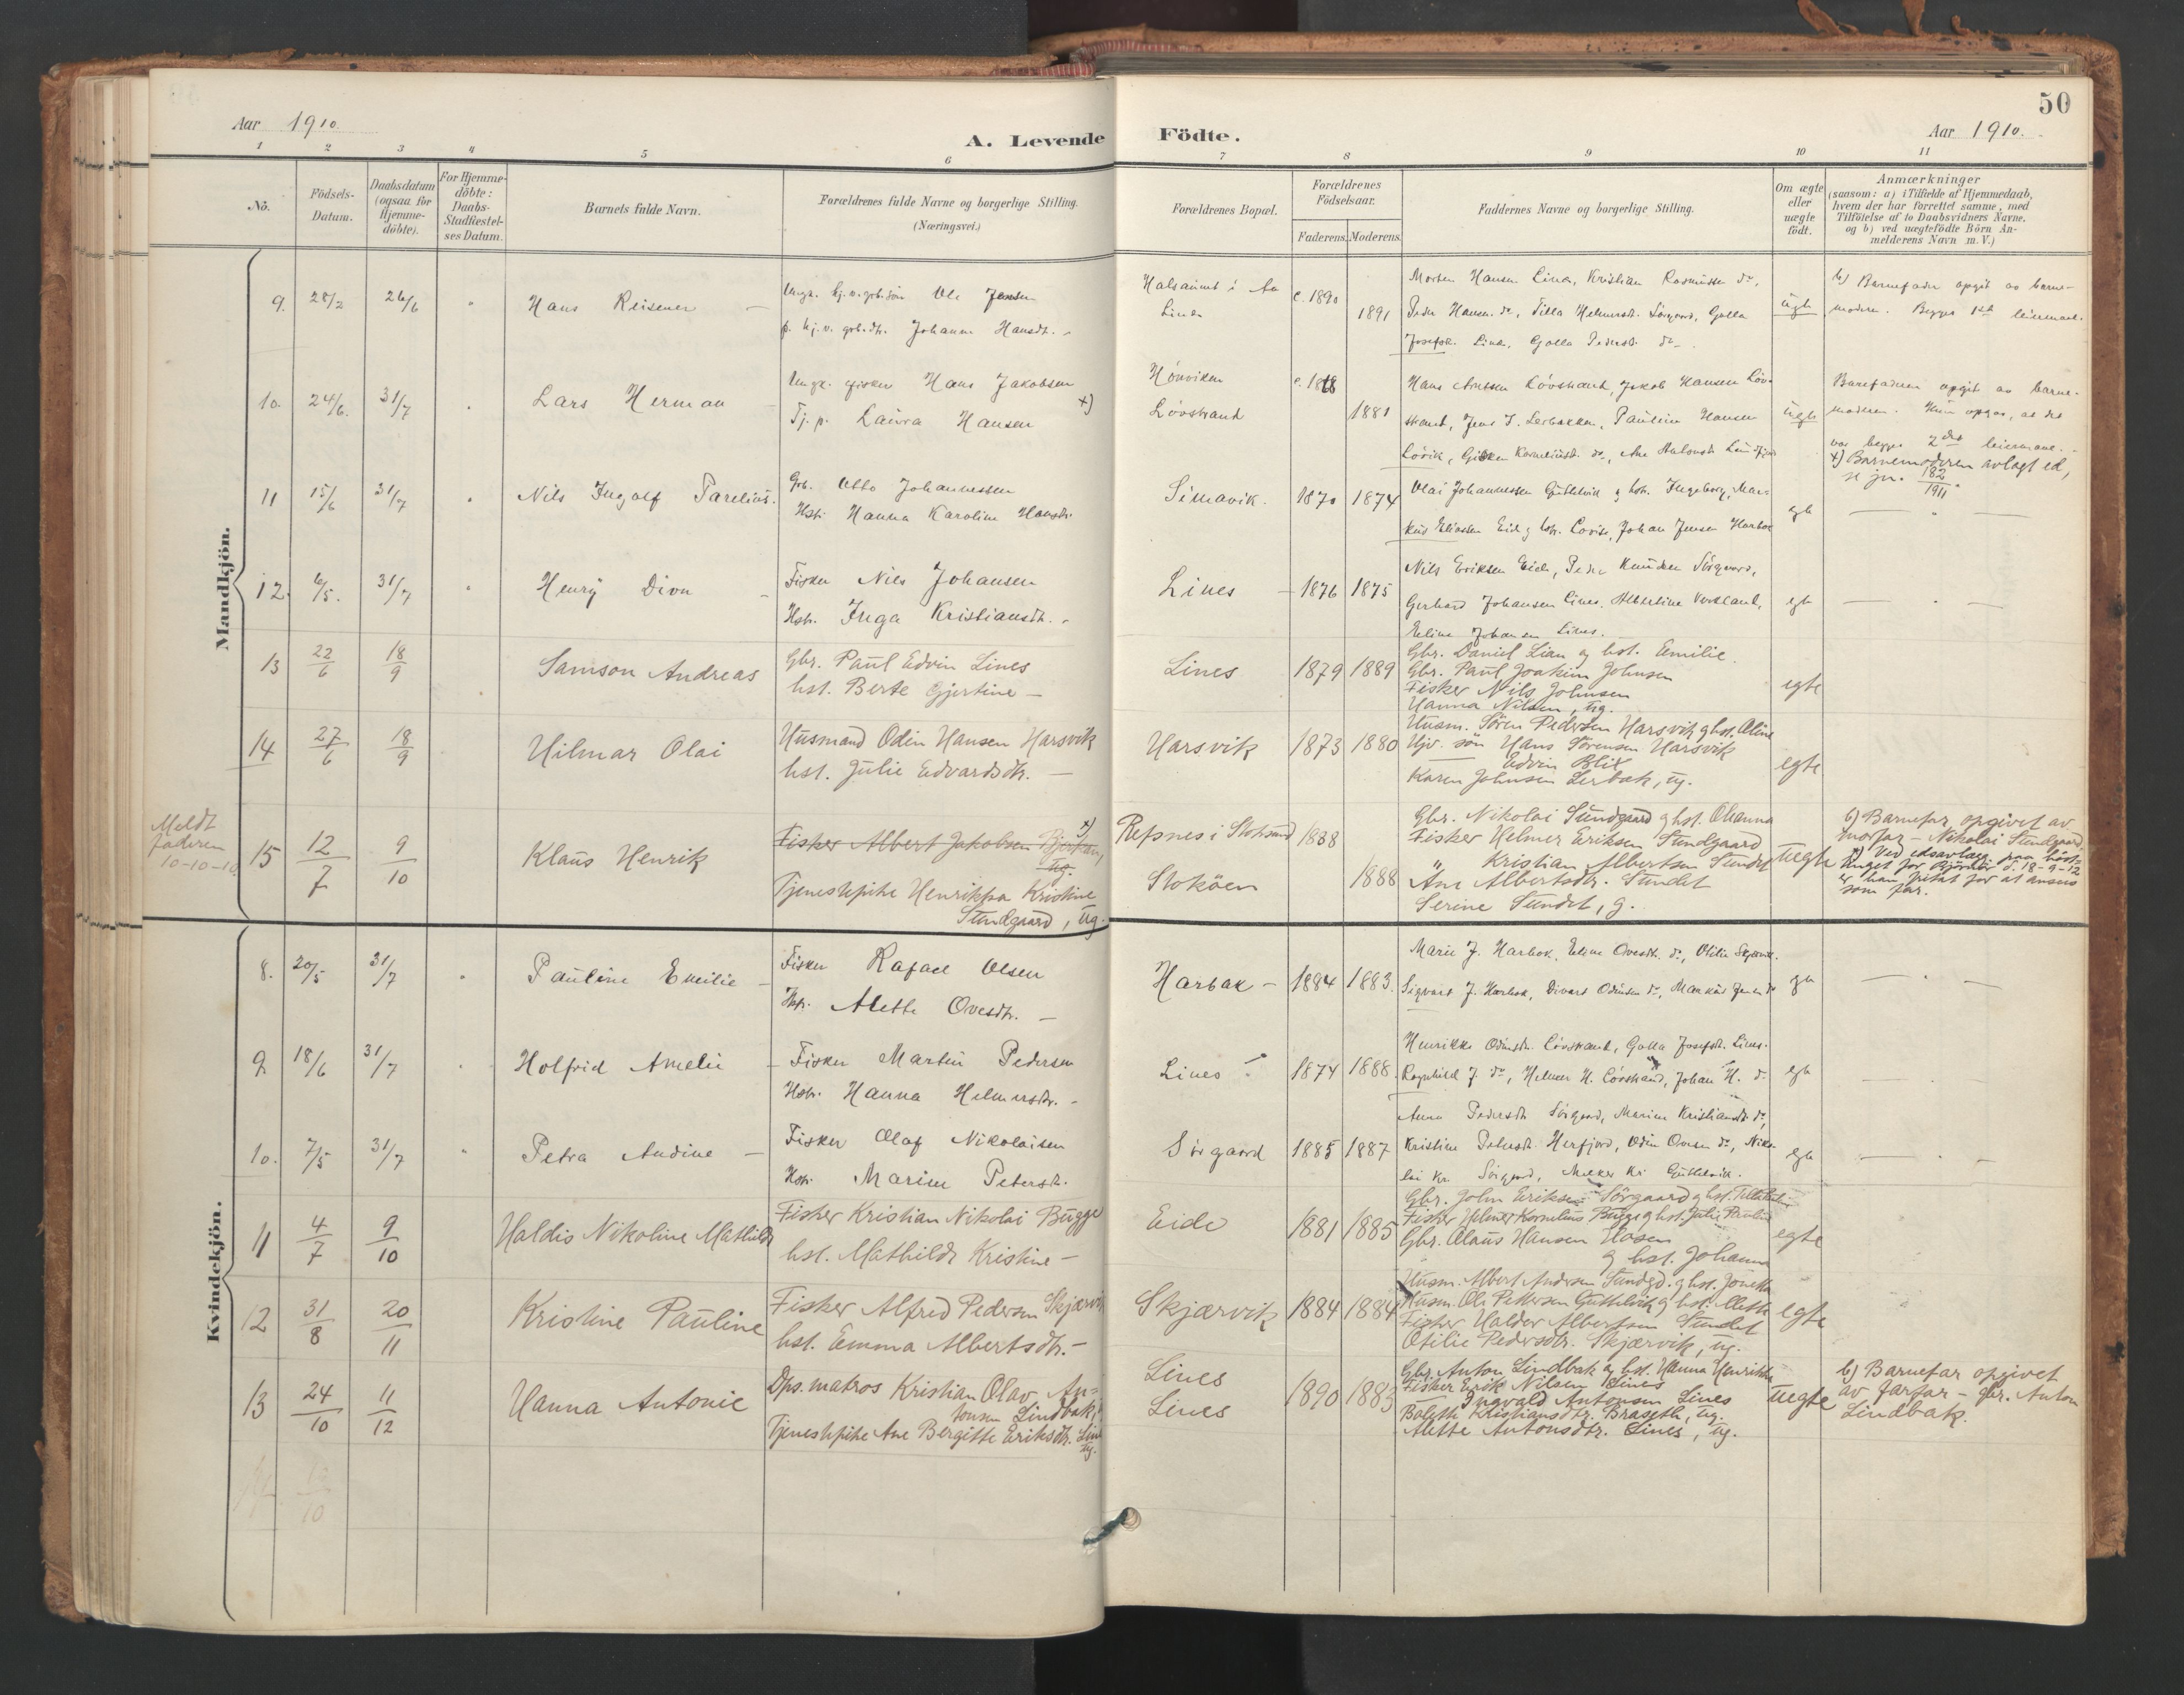 50
Aar 1910.
A. Levende Födte.
Aar 1910.
1 2 3 4 5 6 7 8 9 10 11
Nö.
Födsels-
Datum.
Daabsdatum
(ogsaa for
Hjemme-
döbte).
For Hjemme-
döbte:
Daabs-
Stadfæstel-
ses Datum.
Barnets fulde Navn.
Forældrenes fulde Navne og borgerlige Stilling.
(Næringsvei.)
Forældrenes Bopæl.
Forældrenes
Födselsaar.
Faderens. Moderens.
Faddernes Navne og borgerlige Stilling.
Om ægte
eller
uægte
födt.
Anmærkninger
(saasom: a) i Tilfælde af Hjemmedaab,
hvem der har forrettet samme, med
Tilföielse af to Daabsvidners Navne,
og b) ved uægtefödte Börn An-
melderens Navn m. V.)
Mandkjön.
9. 28/2 26/6 " Hans Reisener —
Ungk. Ole Jensen
Johanna Hansdt. -
Halsaunet i Aa
Lines
c. 1890 1891
Morten Hansen Lines, Kristian Rasmussen do,
Peder Hansen do, Helmersdt. Sörgaard, Golla
Josefsdt. Lines, Golla Pedersdt. do
uegte
b) Barnefader opgit av barne-
moderen. Begges 1ste leiermaal.
10. 24/6. 31/7 " Lars Herman
Ungk. fisker Hans Jakobsen
Tj. p. Laura Hansen x)
Hönviken
Lövstrand
1881
Hans Lövstrand, Jakob Hansen Löv-
strand, Jens J. Lerbakken, Pauline Hansen
uegte
Barnefaderen opgit av barne-
moderen. Hun opgav, at det
var begges 2det leiermaal.
x) Barnemoderen avlagt ed,
se jnr. 182/1911.
11 15/6 31/7 " Nils Ingolf Parelius.
Grb. Otto Johannessen
Hst. Hanna Karoline Hansdt.
Simavik. 1870 1874
Olai Johannessen Guttelvik og hst. Ingeborg, Mar-
kus Eliassen Eid og hst. Lovise, Johan Jensen Harbak
egte — " —
12. 6/5. 31/7 " Henry Divn —
Fisker Nils Johansen
Hst. Inga Kristiansdt. -
Lines — 1876 1875
Nils Eriksen Eide, Peder Knudsen Sörgaard,
Gerhard Johansen Lines, Albertine
Eeline Johansen Lines.
egte — " —
13 22/6 18/9 " Samson Andreas
Gbr. Paul Edvin Lines
hst. Berte Gjertine —
Lines 1879 1889
Gbr. Daniel Lian og hst. Emilie.
Gbr. Paul Joakim Johnsen
Fisker Nils Johnsen
Hanna Nilsen, ug.
egte
14 27/6 18/9 Hilmar Olai
Husmand Odin Hansen Harsvik
hst. Julie Edvardsdtr. —
Harsvik 1873 1880
Husm. Sören Pedersen Harsvik og hst. Oline
Ugv. sön Hans Sörensen Harsvik
— Edvin Blik
Karen Johnsen Lerbak, ug.
egte
Meldt
faderen
10-10-10.
15 12/7 9/10 Klaus Henrik
Fisker Albert Jakobsen Bjørkan, x)
ug.
Tjenestepike Henrikka Kristine
Sundgaard, ug.
Refsnes i Stoksund 1888
Stokøen 1888
Gbr. Nikolai Sundgaard og hst. Ohanna
Fisker Helmer Eriksen Sundgaard
" Kristian Albertsen Sundet
Ane Albertsdtr. Sundet
Serine Sundet, g.
uegte
b) Barnefar opgivet av
morfar — Nikolai Sundgaard.
x) Ved edsavlæg. paa höst-
tinget for Bjørnör d. 18-9-12
er han fritat for at ansees
som far.
Kvindekjön.
8. 20/5 31/7 " Pauline Emilie —
Fisker Rafael Olsen
Hst. Alette Ovesdtr. —
Harbak — 1884 1883.
Marie J. Harbak, Eline Ovesdt. do, Otilie
Sigvart J. Harbak, Divart Odinsen do, Markus Jensen do
egte — " —
9. 18/6 31/7 " Holfrid Amelie
— Fisker Martin Pedersen
Hst. Hanna Helmersdtr. -
Lines 1874 1888.
Henrikke Odinsdt. Lövstrand, Golla Josefsdt. Lines.
Ragnhild J. do, Helmer H. Lövstrand, Johan H. do
egte — " —
10. 7/5 31/7 " Petra Andine —
Fisker Olaf Nikolaisen
Hst. Marine Petersdt.
Sörgaard 1885 1887
Anna Pedersdt. Sörgaard, Marine Kristiansdt. do,
Kristine Herfjord, Odin Ovesen do, Niko-
lai Kr. Sörgaard, Kr. Guttelvik.
egte — " —
11 4/7 9/10 Haldis Nikoline Mathilde
Fisker Kristian Nikolai Bugge
hst. Mathilde Kristine —
Eide 1881 1885
Gbr. John Eriksen Sörgaard og hst.
Fisker Helmer Kornelius Bugge og hst. Julie Pauline
Gbr. Olaus Hansen Hosen
og hst. Johanna
egte
12 31/8 20/11 Kristine Pauline
Fisker Alfred Pedersen Skjærvik
hst. Emma Albertsdtr. —
Skjærvik 1884 1884
Husm. Albert Andersen Sundgd. og hst. Jonetta
Husm. Ole Pettersen Guttelvik og hst. Alette
Fisher Haldor Albertsen Sundet
Otilie Pedersdtr. Skjærvik, ug.
egte
13 24/10 11/12 Hanna Antonie
Dps. matros Kristian Olav An-
tonsen Lindbak,
Tjenestepike Ane Bergitte Eriksdtr. Lines
ug.
Lines
Lines
1890 1883
Gbr. Anton Lindbak og hst. Hanna Henrikke
Fisker Erik Nilsen Lines
" Ingvald Antonsen Lines
Bolette Kristiansdtr. Braseth, ug.
Alette Antonsdtr. Lines, ug.
uegte
b) Barnefar opgivet
av farfar — gbr. Anton
Lindbak.